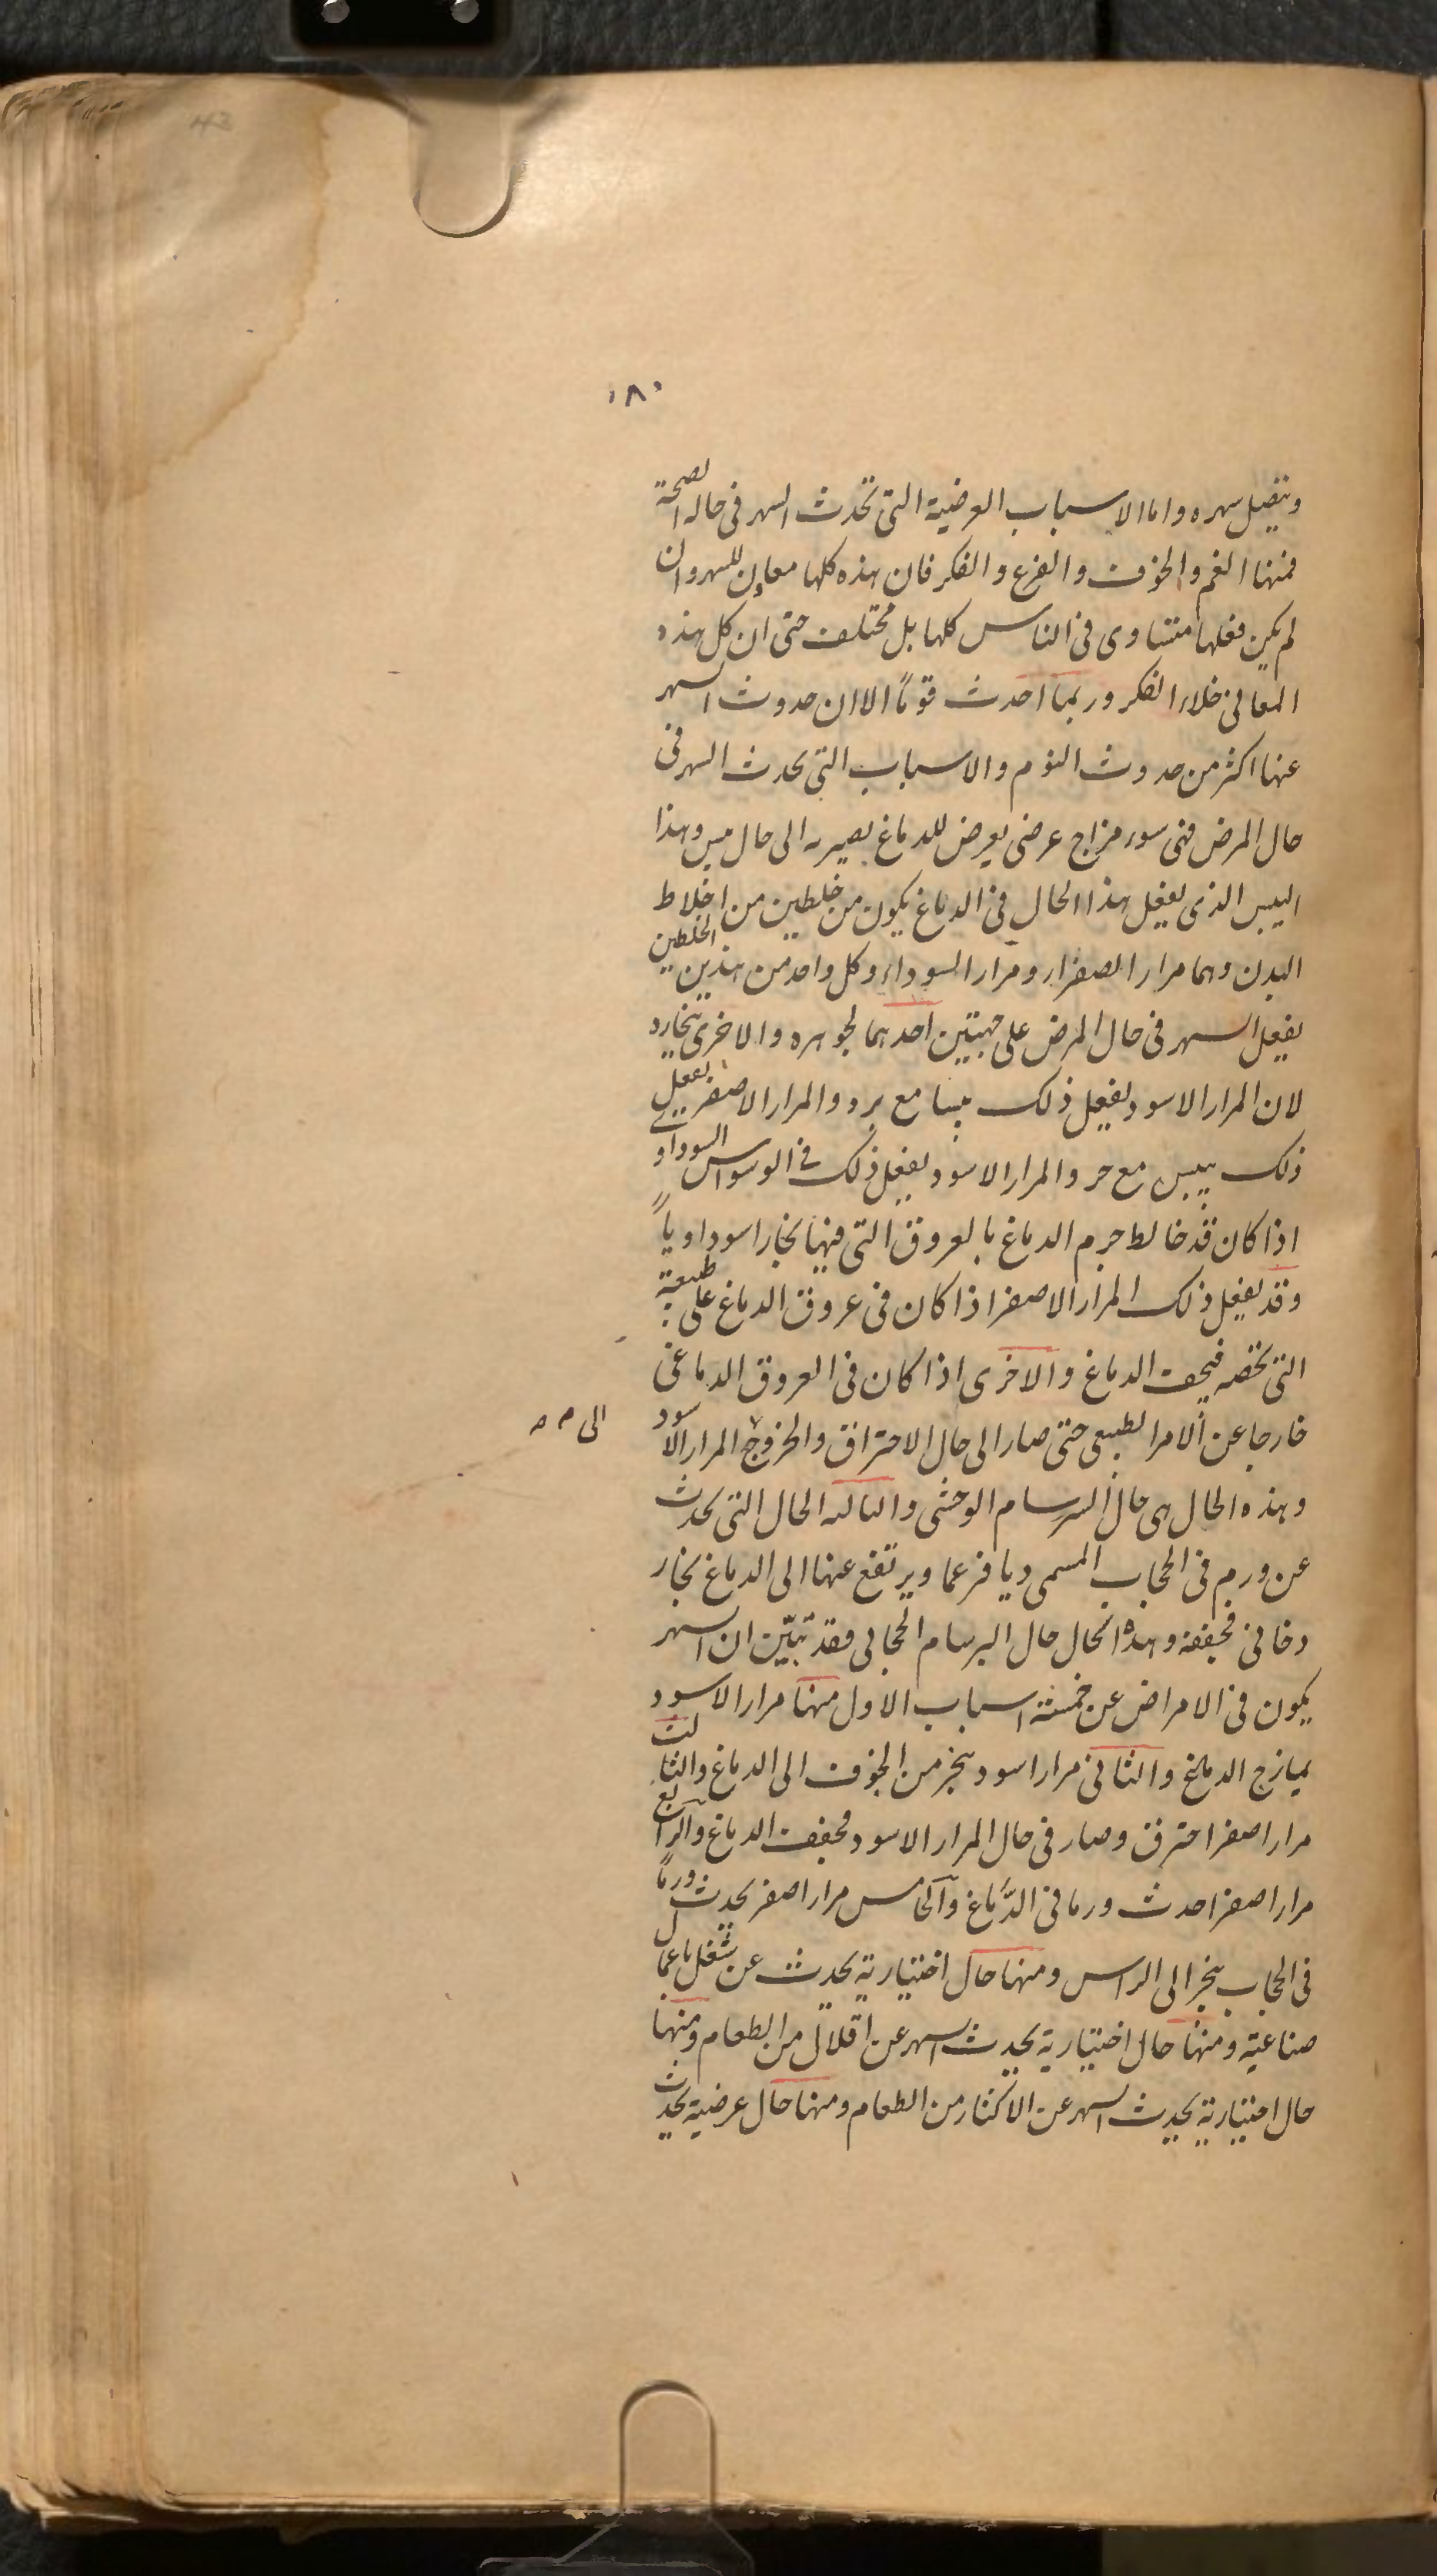 ١٨٠
ويتصل سهره واما الاسباب العرضية التي تحدث السهر في حالة الصحة
فمنها الغم والخوف والفزع والفكر فان هذه كلها معاون للسهر وان
لم يكن فعلها متساوى في الناس كلها بل مختلف حتى ان كل هذه
المعانى خلاء الفكر وربما احدث قوماً الا ان حدوث السهر
عنها اكثر من حدوث النوم والاسباب التي يحدث السهر في
حال المرض فهى سوء مزاج عرضى يعرض للدماغ يصيره الى حال يبس وهذا
اليبس الذى يفعل هذا الحال في الدماغ يكون من خلطين من اخلاط
البدن وهما مرار الصفراء ومرار السوداء وكل واحد من هذين الخلطين
يفعل السهر في حال المرض على جهتين احدهما لجوهره والاخرى بخاره
لان المرار الاسود يفعل ذلك يبسا مع برد والمرار الاصفر يفعل
ذلك بيبس مع حر والمرار الاسود يفعل ذلك في الوسواس السوداوى
اذا كان قد خالط جرم الدماغ بالعروق التي فيها بخارا سوداوياً
وقد يفعل ذلك المرار الاصفر اذا كان في عروق الدماغ على طبيعته
التي تخصه فيجف الدماغ والاخرى اذا كان في العروق الدماغى
خارجا عن الامر الطبيعى حتى صار الى حال الاحتراق والخروج المرار الاسود
الى ٥٥
وهذه الحال هى حال السرسام الوحشى والثالثه الحال التي يحدث
عن ورم في الحجاب المسمى ديافزعما ويرتفع عنها الى الدماغ بخار
دخانى فجففه وهذه الحال حال البرسام الحجابى فقد تبيّن ان السهر
يكون في الامراض عن خمسة اسباب الاول منها مرار الاسود
يمازج الدماغ والثانى مرارا اسود يبخر من الجوف الى الدماغ والثالث
مرار اصفر احترق وصار في حال المرار الاسود فجفف الدماغ والرابع
مرار اصفر احدث ورما في الدّماغ والخامس مرار اصفر يحدث ورماً
في الحجاب يبخر الى الراس ومنها حال اختيارية يحدث عن شغل باعمال
صناعية ومنها حال اختيارية يحدث السهر عن اقلال من الطعام ومنها
حال اختيارية يحدث السهر عن الاكثار من الطعام ومنها حال عرضية يحدث